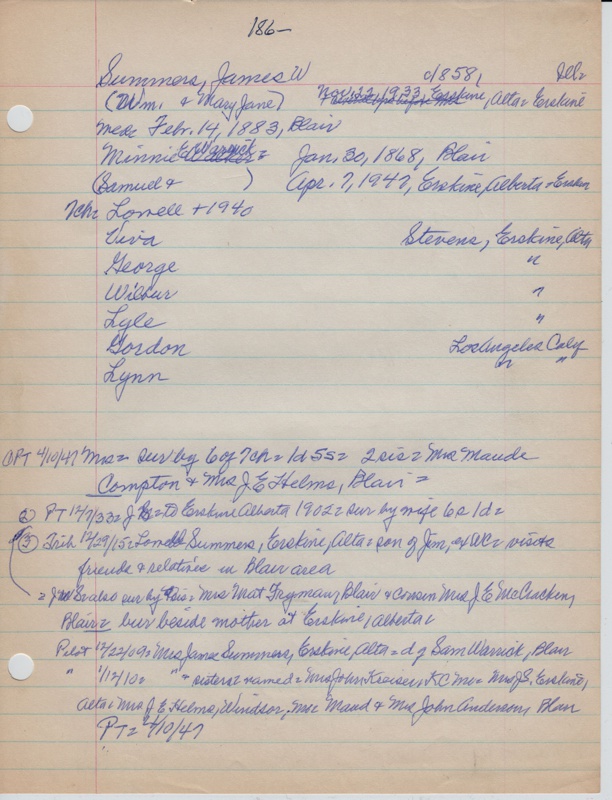 186-
Summers, James W c/1858, Ill=
(Wm. & Mary Jane) Nov. 22, 1933, Erskine, Alta= Erskine
med= Febr. 14, 1883, Blair
Minnie E Warrick = Jan. 30, 1868, Blair
(Samuel & ) Apr. 7, 1947, Erskine, Alberta = Erskin
7ch= Lowell +1940
Viva Stevens, Erskine, Alta
George "
Wilbur "
Lyle "
Gordon Los Angeles Calif
Lynn " "
PT 4/10/47 Mrs= sur by 6 of 7ch= 1d 5s= 2 sis= Mrs Maude
Compton & Mrs J. E Helms, Blair =
PT 12/7/33= to Erskine Alberta 1902= sur by wife 6s 1d=
(3) Trib 12/29/15= Lowell Summers, Erskine, Alta= son of Jim, of WC= visits
friends & relatives in Blair area
= JWS also sur by sis= Mrs Mat Fryman, Blair & cousin Mrs J. E McCracken,
Blair= bur beside mother at Erskine, Alberta=
Pilot 12/22/09= Mrs James Summers, Erskine, Alta= d of Sam Warrick, Blair
" 1/12/10= " " & sisters= named= Mrs John Kaiser, KC Mo= Mrs JS, Erskine,
Alta= Mrs J. E Helms, Windsor, Mrs Maud & Mrs John Anderson, Blair
PT= 4/10/47